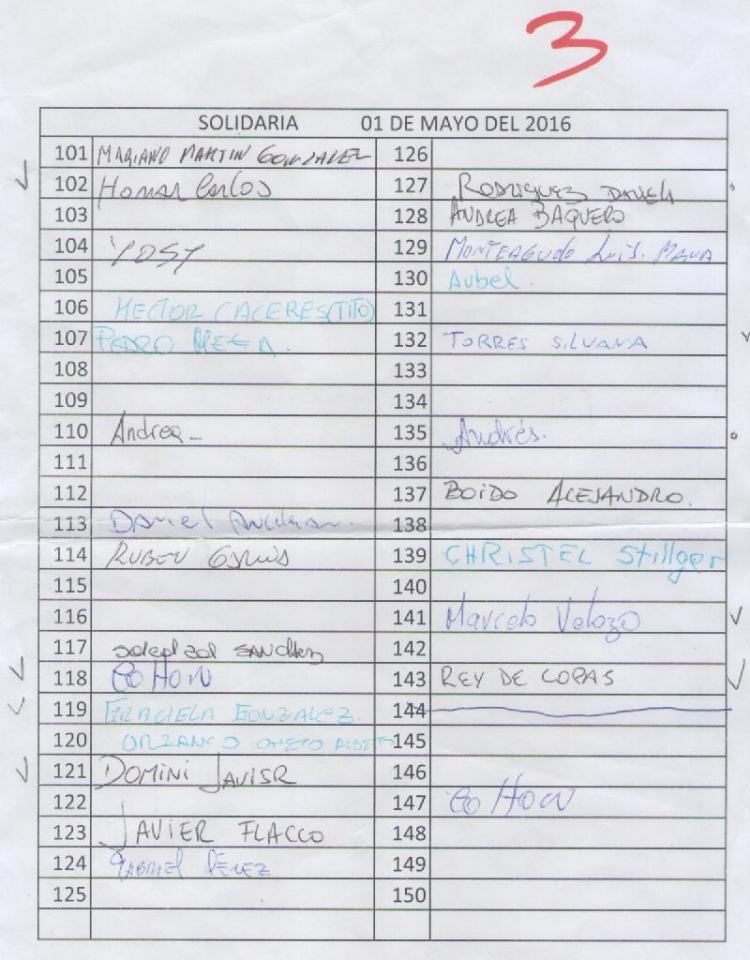 3
SOLIDARIA 01 DE MAYO DEL 2016
101 MARIANO MARTIN GONZALEZ
102 Carlos
103
104 YOSY
105
106 HECTOR CACERES (TITO)
107 PEDRO
108
109
110 Andrea
111
112
113 Daniel
114 RUBEN
115
116
117 SANCHEZ
118 Go HoW
119 GRACIELA GONZALEZ.
120
121 DOMINI JAVISR
122
123 JAVIER FLACCO
124 GABRIEL PÉREZ
125
126
127 RODRIGUEZ DANIEL
128 ANDREA BAQUERO
129 MONTEAGUDO LUIS. MARIA
130 Aubel.
131
132 TORRES SILVANA
133
134
135 Andrés.
136
137 BOIDO ALEJANDRO.
138
139 CHRISTEL Stillger
140
141 Marcelo Velozo
142
143 REY DE COPAS
144
145
146
147 Go HoW
148
149
150